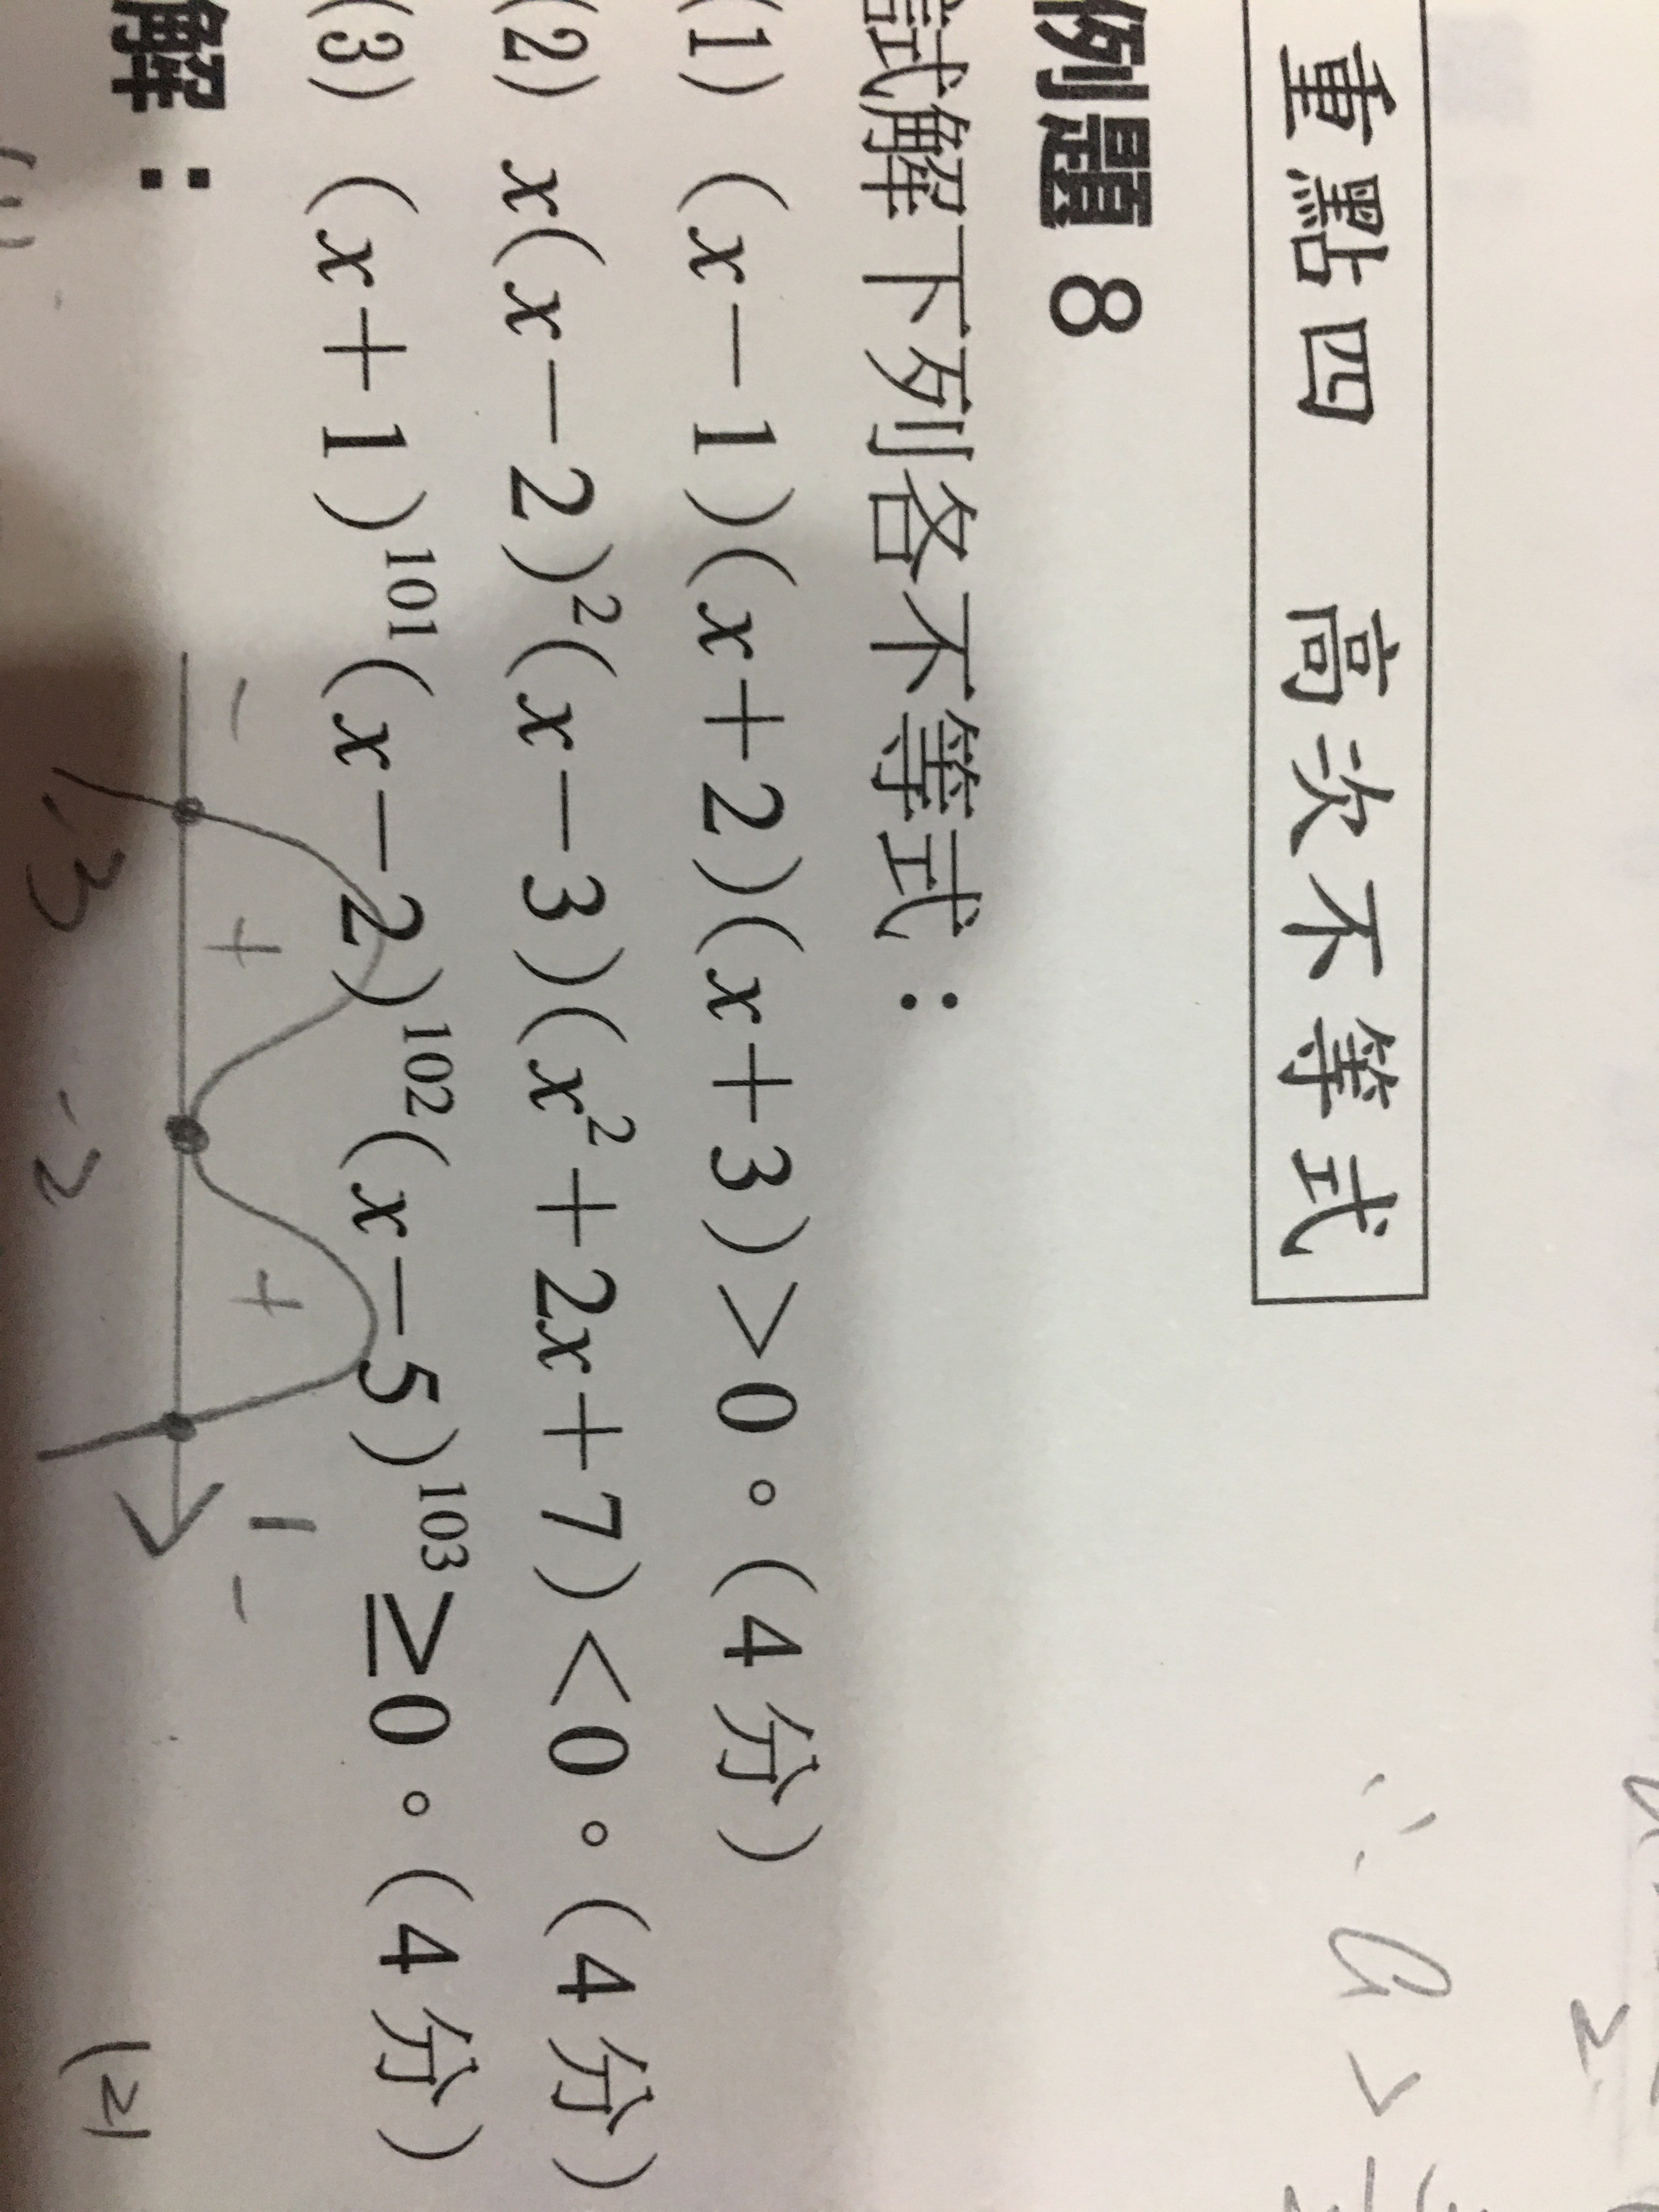 重點四 高次不等式
例題 8
試解下列各不等式：
(1) (x－1)(x＋2)(x＋3)＞0。(4分)
(2) x(x－2)²(x－3)(x²＋2x＋7)＜0。(4分)
(3) (x＋1)¹⁰¹(x－2)¹⁰²(x－5)¹⁰³≥0。(4分)
解：
(1)
－ ＋ ＋ －
-3 -2 1
(2)
∴ a >